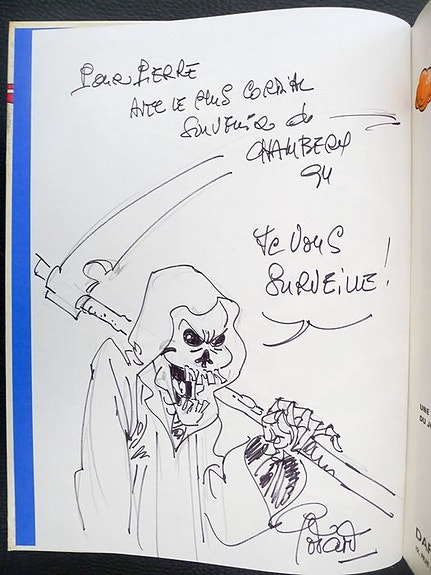 Pour PIERRE
AVEC LE PLUS CORDIAL
SOUVENIR de
CHAMBERY
94
JE VOUS
SURVEILLE!
UNE
DU J
DAR